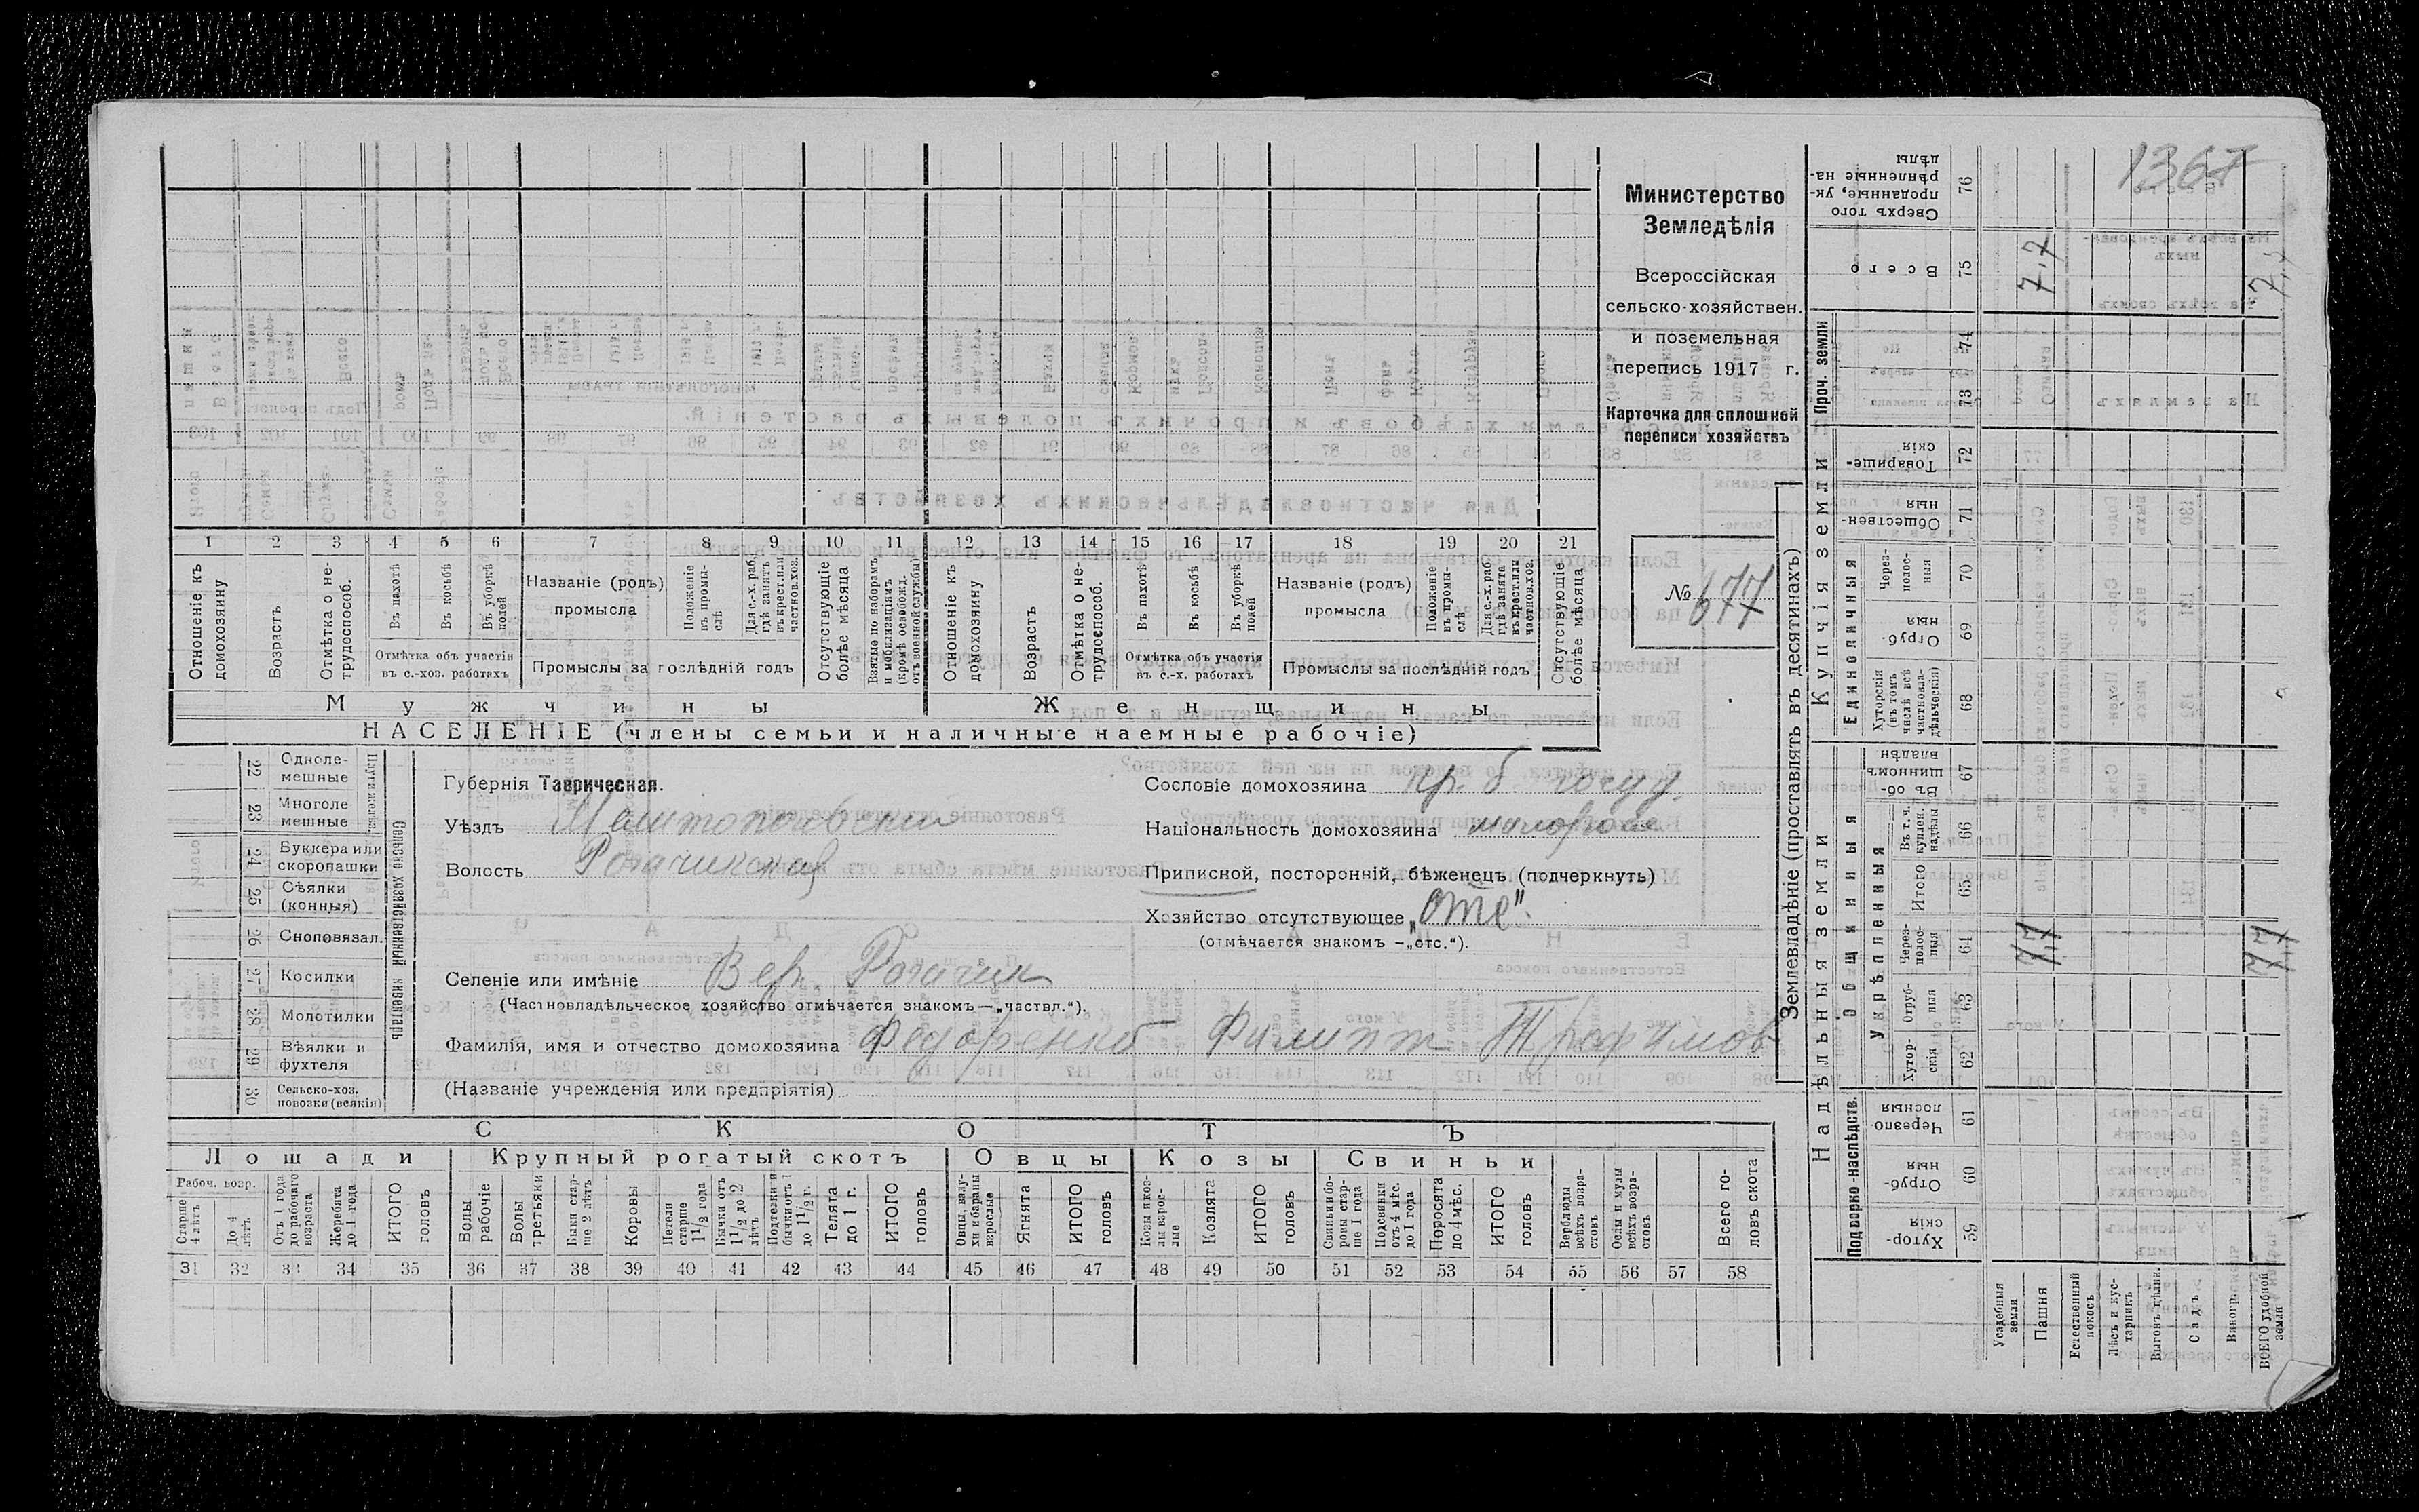 1367
Министерство
Земледѣлія
Всероссійская
сельско-хозяйствен.
и поземельная
перепись 1917 г.
Карточка для сплошной
переписи хозяйствъ
№ 677
1 2 3 4 5 6 7 8 9 10 11 12 13 14 15 16 17 18 19 20 21
Отношеніе къ домохозяину
Возрастъ
Отмѣтка о не-трудоспособ.
Въ пахотѣ
Въ косьбѣ
Въ уборкѣ полей
Отмѣтка объ участіи
въ с.-хоз. работахъ
Названіе (родъ)
промысла
Положеніе въ промы-слѣ
Для с.-х. раб. гдѣ занятъ въ крест. или частнов. хоз.
Промыслы за послѣдній годъ
Отсутствующіе болѣе мѣсяца
Взятые по наборамъ и мобилизаціямъ (кромѣ освобожд. отъ военной службы)
Отношеніе къ домохозяину
Возрастъ
Отмѣтка о не-трудоспособ.
Въ пахотѣ
Въ косьбѣ
Въ уборкѣ полей
Отмѣтка объ участіи
въ с.-х. работахъ
Названіе (родъ)
промысла
Положеніе въ промы-слѣ
Для с.-х. раб. гдѣ занята въ крест. или частнов. хоз.
Промыслы за послѣдній годъ
Отсутствующіе болѣе мѣсяца
Мужчины
Женщины
НАСЕЛЕНІЕ (члены семьи и наличные наемные рабочіе)
22 Одноле-мешные
23 Многоле мешные
24 Буккера или скоропашки
25 Сѣялки (конныя)
26 Сноповязал.
27 Косилки
28 Молотилки
29 Вѣялки и фухтеля
30 Сельско-хоз. повозки (всякія)
Плуги жел. дѣ.
Сельско хозяйственный инвентарь
Губернія Таврическая.
Уѣздъ Мелитопольскій
Волость Рогачикская
Сословіе домохозяина кр. б. госуд.
Національность домохозяина малоросс
Приписной, посторонній, бѣженецъ (подчеркнуть)
Хозяйство отсутствующее „отс“.
(отмѣчается знакомъ —„отс.“).
Селеніе или имѣніе Вер. Рогачик
(Частновладѣльческое хозяйство отмѣчается знакомъ—„частвл.“).
Фамилія, имя и отчество домохозяина Федоренко Филипп Трофимов
(Названіе учрежденія или предпріятія)
СКОТЪ
Лошади
Крупный рогатый скотъ
Овцы
Козы
Свиньи
Рабоч. возр.
Старше 4 лѣтъ
До 4 лѣтъ
Отъ 1 года до рабочаго возраста
Жеребята до 1 года
ИТОГО головъ
Волы рабочіе
Волы третьяки
Быки стар-ше 2 лѣтъ
Коровы
Нетели старше 1 1/2 года
Бычки отъ 1 1/2 до 2 лѣтъ
Подтелки и бычки отъ 1 до 1 1/2 г.
Телята до 1 г.
ИТОГО головъ
Овцы, валу-хи и бараны взрослые
Ягнята
ИТОГО головъ
Козы и коз-лы взрос-лые
Козлята
ИТОГО головъ
Свиньи и бо-ровы стар-ше 1 года
Подсвинки отъ 4 мѣс. до 1 года
Поросята до 4 мѣс.
ИТОГО головъ
Верблюды всѣхъ возра-стовъ
Ослы и мулы всѣхъ возра-стовъ
Всего го-ловъ скота
31 32 33 34 35 36 37 38 39 40 41 42 43 44 45 46 47 48 49 50 51 52 53 54 55 56 57 58
Землевладѣніе (проставлять въ десятинахъ)
Надѣльныя земли
Купчія земли
Проч. земли
Подворно-наслѣдств.
Общинныя
Укрѣпленныя
Единоличныя
Сверхъ того проданные, ук-рѣпленные на-дѣлы 76
Всего 75 7,7 7,7
74
73
Товарище-скія 72
Обществен-ныя 71
Через-полос-ныя 70
Отруб-ныя 69
Хуторскія (въ томъ числѣ всѣ частновла-дѣльческія) 68
Въ об-щинномъ владѣн 67
Въ т. ч. куплен. надѣлы 66
Итого 65
Через-полос-ныя 64 7,7 7,7
Отруб-ныя 63
Хутор-скія 62
Черезпо-лосныя 61
Отруб-ныя 60
Хутор-скія 59
Усадебныя земли
Пашня
Естественный покосъ
Лѣсъ и кус-тарникъ
Садъ
ВСЕГО удобной земли